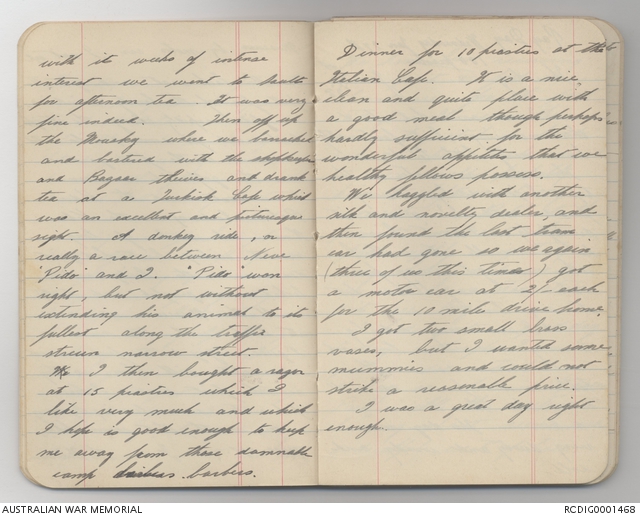 with it weeks of intense
interest we went to Saults
for afternoon tea. It was very
fine indeed. Then off up
the Mousky where we barracked
and bartered with the shopkeeps
and Bazaar theives and drank
tea at a Turkish Cafe which
was an excellent and picturesque
sight. A donkey ride, or
really a race between Neve
"Pido" and I. "Pido" won
right, but not without
extending his animal to its
fullest along the traffic
strewn narrow street.
We I then bought a razor
at 15 piastries which I
like very much and which
I hope is good enough to keep
me away from those damnable
camp barbers.
Dinner for 10 piastres at the
Italian Cafe. It is a nice
clean and quite place with
a good meal though perhaps
hardly sufficient for the
wonderful appitites that we
healthy fellows possess.
We haggled with another
silk and novelty dealer, and
then found the last tram
car had gone so we again
(three of us this time) got
a motor car at 2/- each
for the 10 mile drive home.
I got two small brass
vases, but I wanted some
mummies and could not
strike a reasonable price.
I was a great day right
enough.
AUSTRALIAN WAR MEMORIAL
RCDIG0001468